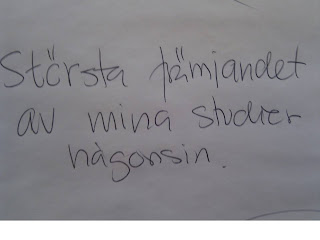 Största främjandet
av mina studier
någonsin.